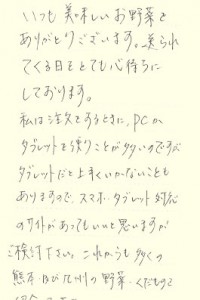 いつも美味しいお野菜を
ありがとうございます。送られ
てくる日をとても心待ちに
しております。
私は注文をするときに、PCか
タブレットを使うことが多いのですが
タブレットだと上手くいかないことも
ありますので、スマホ・タブレット対応
のサイトがあってもいいと思いますが
ご検討下さい。これからも多くの
熊本及び九州の野菜・くだもので